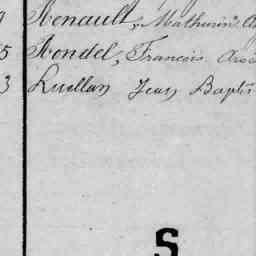 Renault, Mathurin
5 Rondel, Francois
3 Ruellan Jean Baptis
S